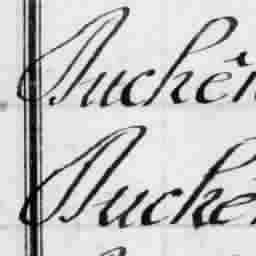 Auchên
Auchê